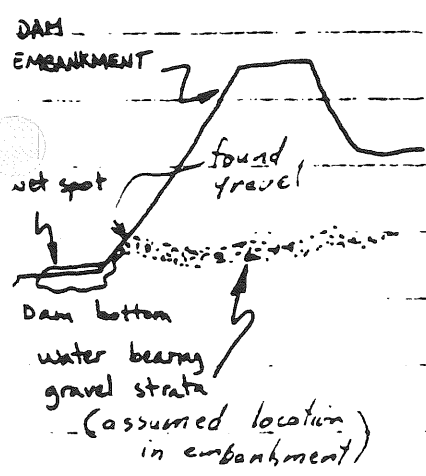 DAM
EMBANKMENT
found
gravel
wet spot
Dam bottom
water bearing
gravel strata
(assumed location
in embankment)